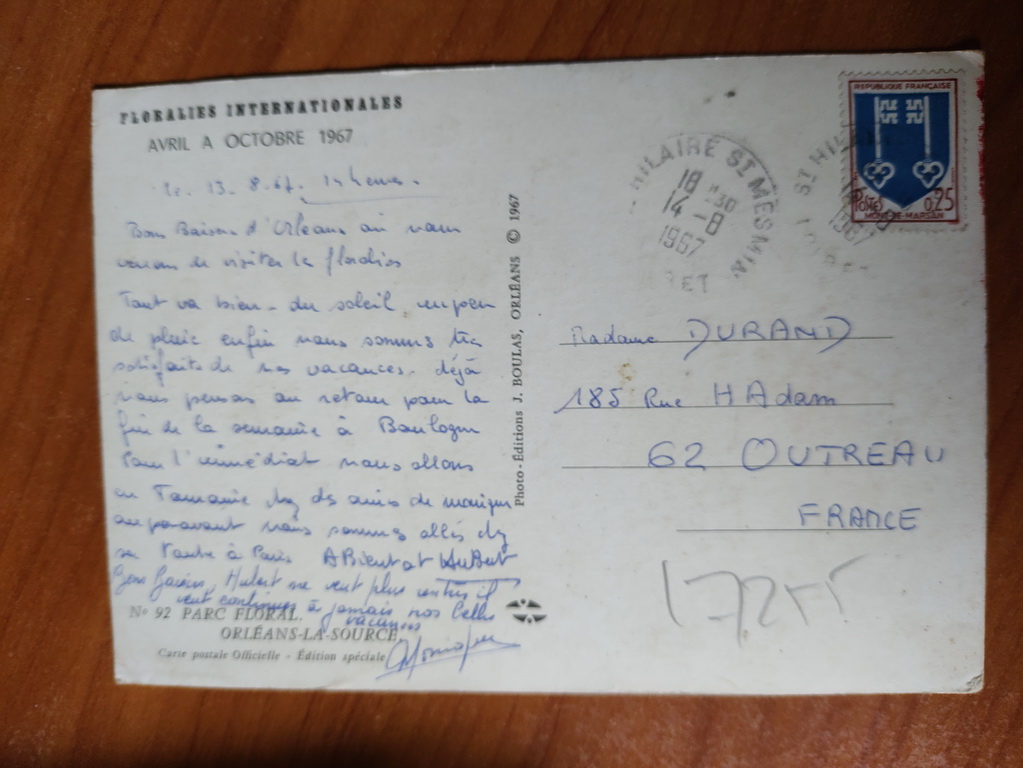 FLORALIES INTERNATIONALES
AVRIL A OCTOBRE 1967
le 13.8.67. 14 heures.
Bons Baisers d'Orléans où nous
venons de visiter les floralies
Tout va bien - du soleil, un peu
de pluie enfin nous sommes très
satisfaits de nos vacances. déjà
nous pensons au retour pour la
fin de la semaine à Boulogne
Pour l'immédiat nous allons
en Touraine chez des amis de monique
auparavant nous sommes allés chez
sa Tante à Paris A Bientot Hubert
Gros Baisers, Hubert ne veut plus rentrer il
veut continuer à jamais nos belles
vacances
No 92 PARC FLORAL.
ORLÉANS-LA-SOURCE
Carte postale Officielle - Édition spéciale
Photo-Éditions J. BOULAS, ORLÉANS © 1967
HILAIRE ST MESMIN
18 H30
14-8
1967
RET
ST HIL
1967
RÉPUBLIQUE FRANÇAISE
POSTES 0,25
MONT-DE-MARSAN
Madame DURAND
185 Rue H Adam
62 OUTREAU
FRANCE